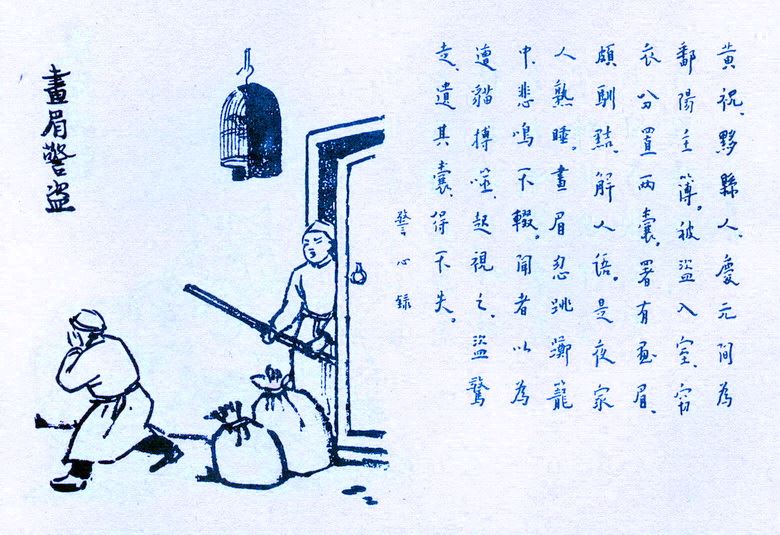 黄祝、黟縣人、慶元間為
鄱陽主簿。被盜入室、竊
衣分置兩囊。署有画眉、
頗馴黠、解人語。是夜家
人熟睡。畫眉忽跳擲籠
中、悲鳴不輟。聞者以為
遭貓搏噬、起視之、盜驚
走、遺其囊、得不失。
警心録
畫眉警盜